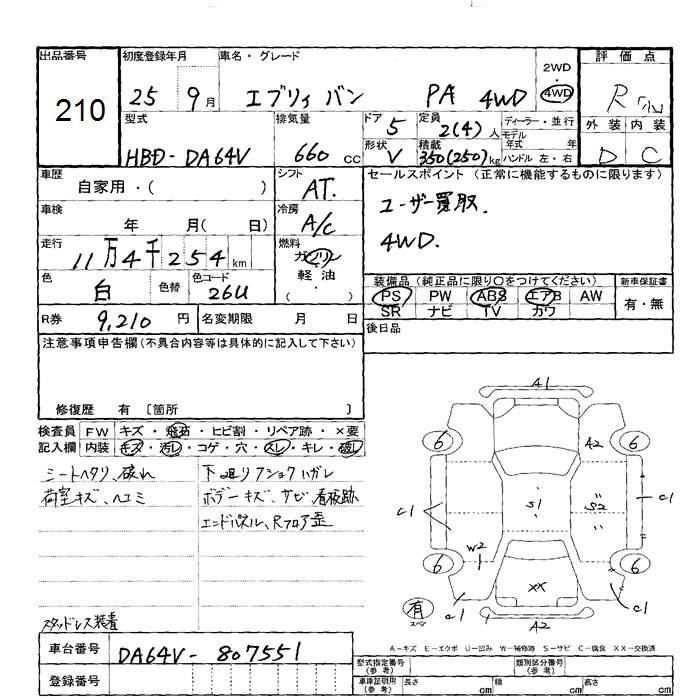 出品番号 初度登録年月 車名・グレード 2WD 4WD 評価点
210 25 9月 エブリィ バン PA 4WD R
型式 排気量 ドア 5 定員 2(4)人 ディーラー・並行 外装 内装
モデル年式 年
HBD-DA64V 660cc 形状 V 積載 350(250)kg ハンドル 左・右 D C
車歴 自家用・( ) シフト AT. セールスポイント(正常に機能するものに限ります)
車検 年 月( 日) 冷房 A/c ユーザー買取.
走行 11万4千254km 燃料 ガソリン・軽油・( ) 4WD.
色 白 色替 色コード 26U 装備品(純正品に限り○をつけてください) 新車保証書
PS PW ABS エアB AW 有・無
SR ナビ TV カワ
R券 9,210円 名変期限 月 日 後日品
注意事項申告欄(不具合内容等は具体的に記入して下さい)
修復歴 有 〔箇所 〕
検査員 FW キズ・飛石・ヒビ割・リペア跡・×要
記入欄 内装 キズ・汚レ・コゲ・穴・スレ・キレ・破レ
シートヘタリ、破れ 下廻りフショクハガレ
荷室キズ、ヘコミ ボデーキズ、サビ 看板跡
エンドパネル、Rフロア歪
スタッドレス装着
A1
6 A2 6
C1 S1 S2 C1
W2
6 XX 6
有 スペア C1 A2 C1
A-キズ E-エクボ U-凹み W-補修跡 S-サビ C-腐食 XX-交換済
車台番号 DA64V-807551
登録番号
型式指定番号(参考) 類別区分番号(参考)
車庫証明用(参考) 長さ cm 幅 cm 高さ cm